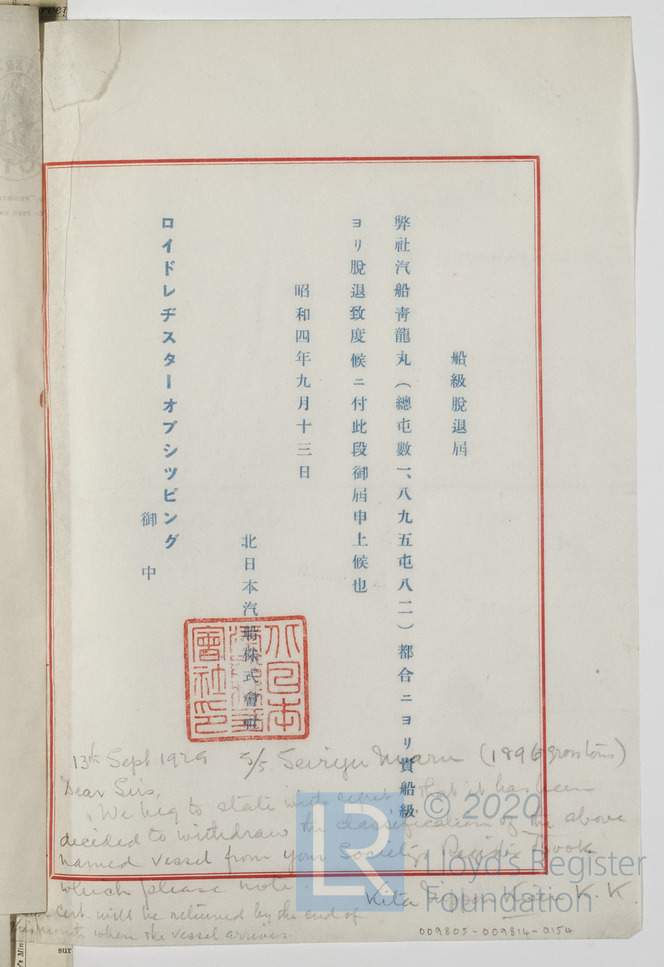 船級脫退屆
弊社汽船靑龍丸（總屯數一、八九五屯八二）都合ニヨリ貴船級
ヨリ脫退致度候ニ付此段御屆申上候也
昭和四年九月十三日
北日本汽船株式會社
北日本汽船株式會社印
ロイドレヂスターオブシツピング
御中
13th Sept 1929 S/S. Seiryu Maru (1896 gross tons)
Dear Sirs,
We beg to state with regret that it has been
decided to withdraw the classification of the above
named vessel from your Society's Book
which please note.
Kita Nippon Kisen K. K.
Cert. will be returned by the end of
when the vessel arrives.
© 2020
LR
Lloyd's Register
Foundation
009805-009814-0154
sur